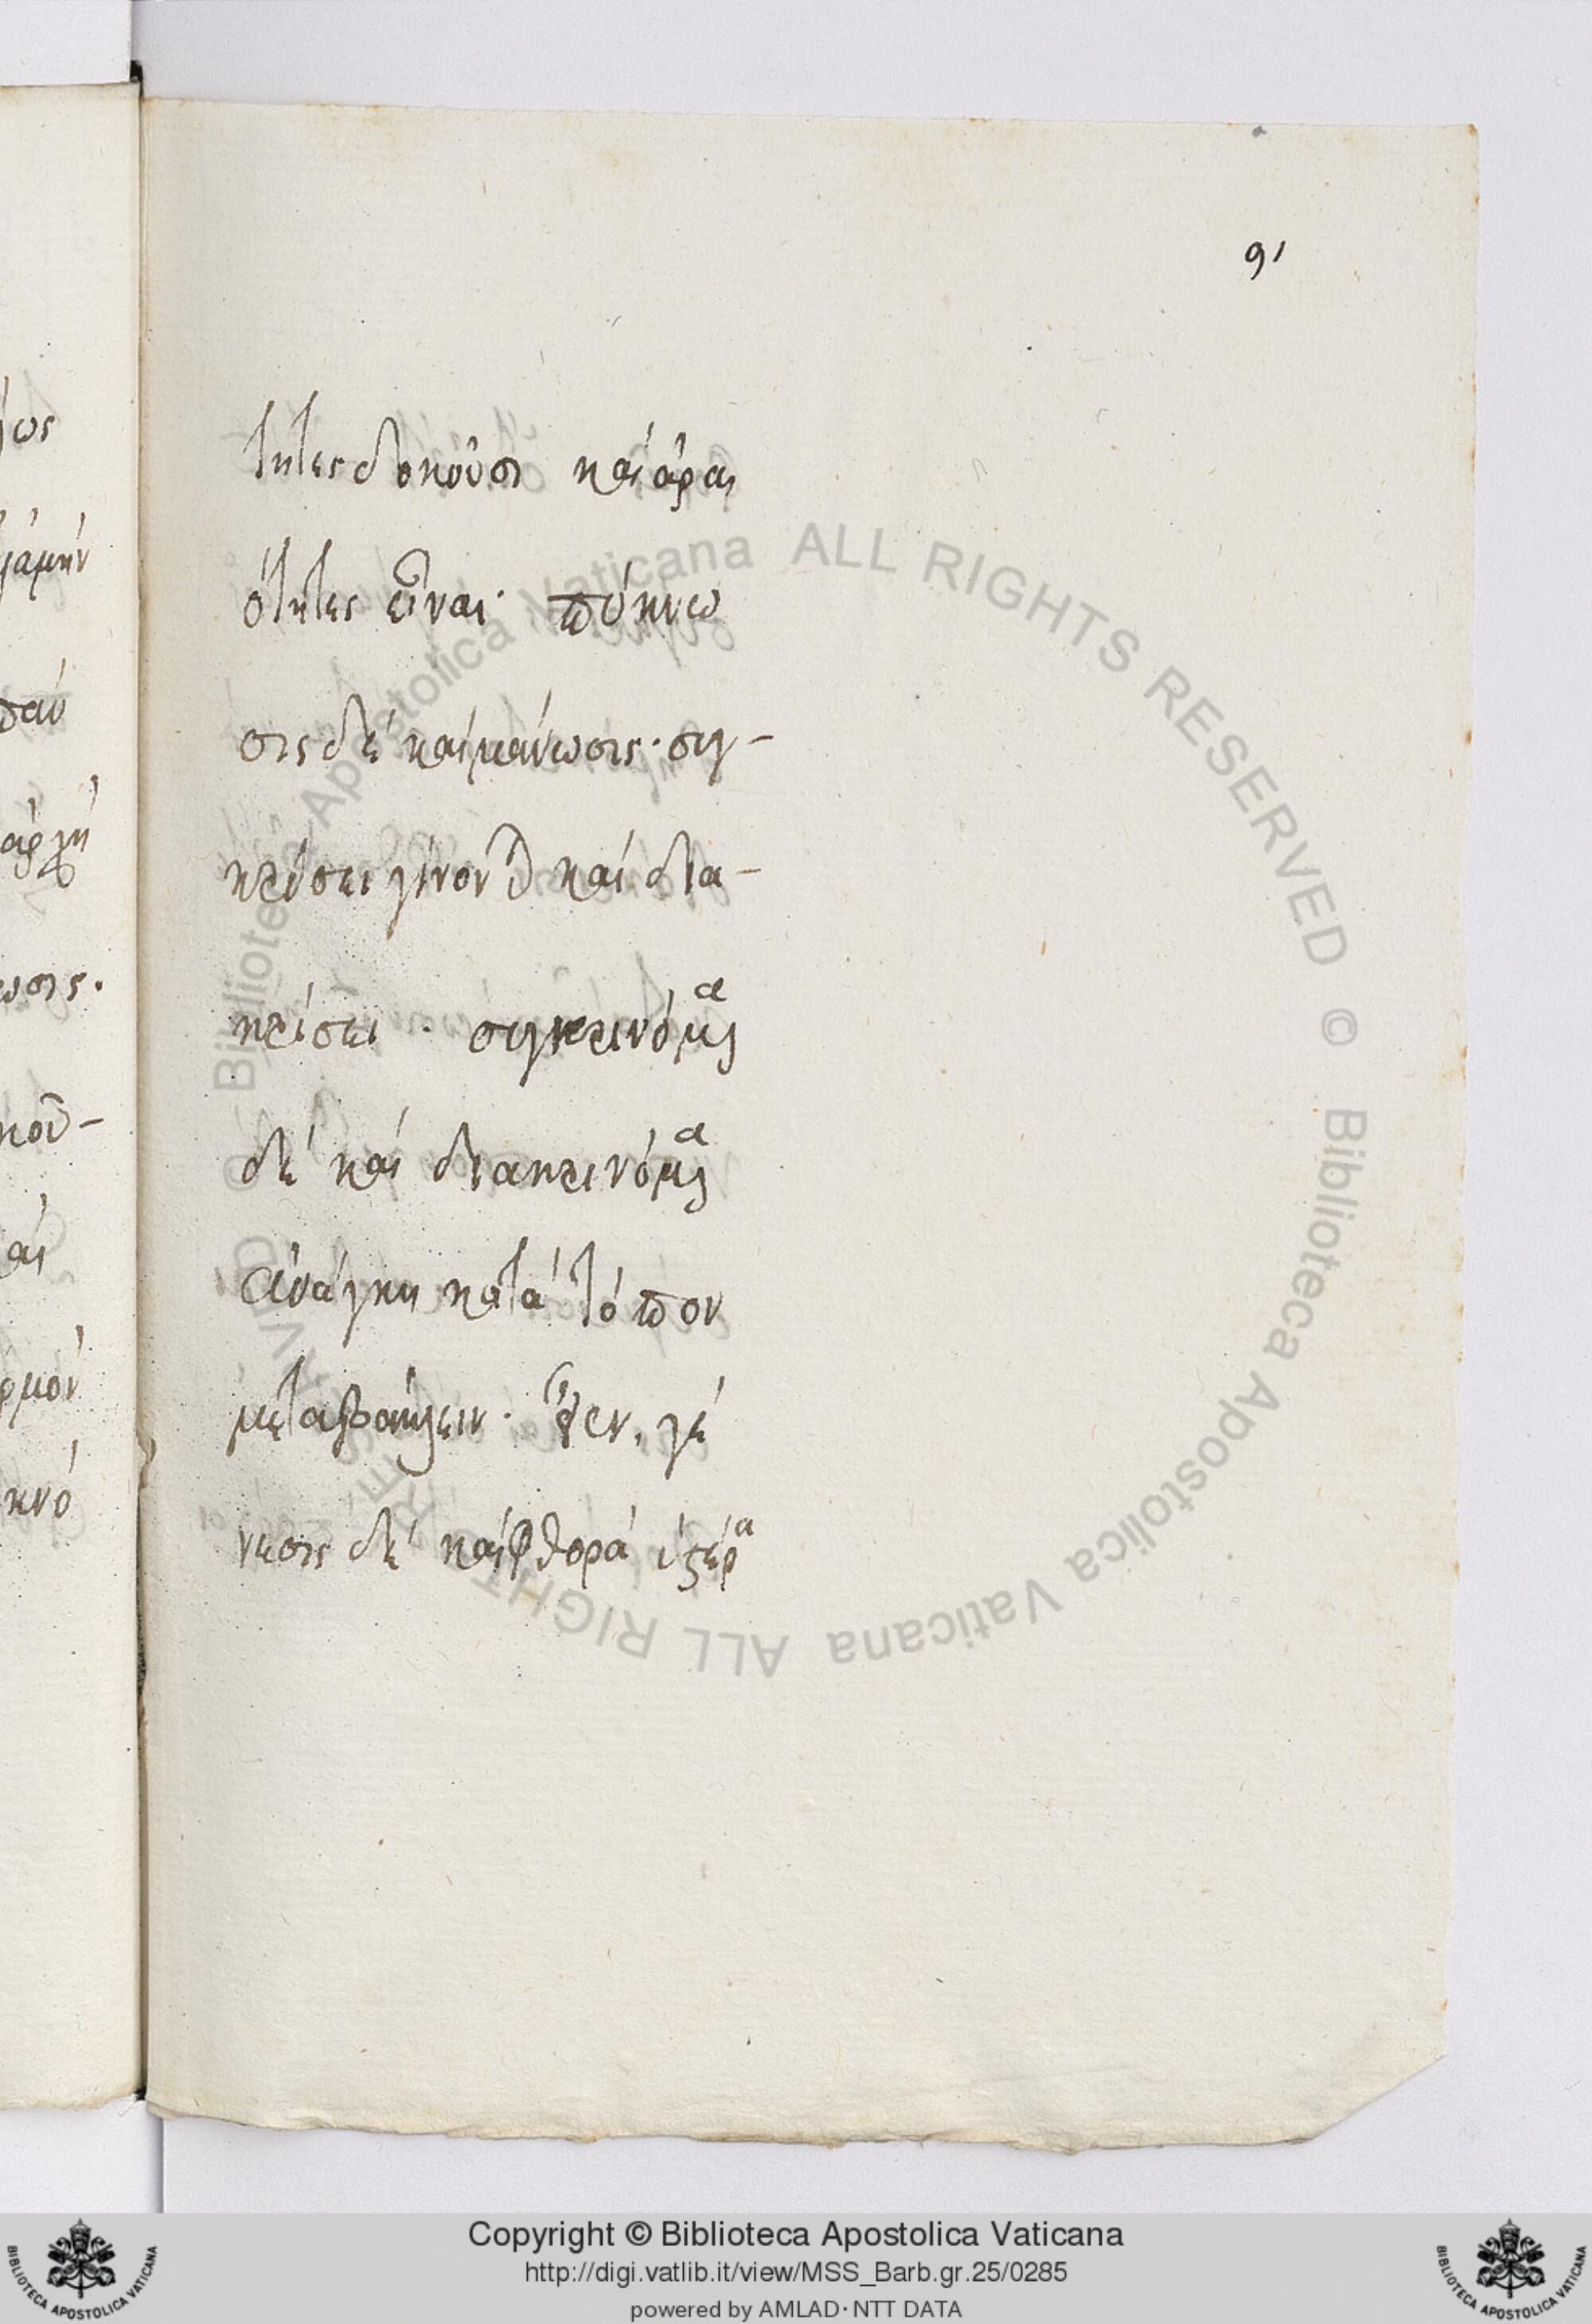 91
τητες δοκοῦσι καὶ ἀραι
ότητες εἶναι· πύκνω
σις δὲ καὶ μάνωσις· συγ-
κρίσει γίνονται καὶ δια-
κρίσει · συγκρινόμενα
δὲ καὶ διακρινόμενα
ἀνάγκη κατὰ τόπον
μεταβάλλειν· γέ
νεσις δὲ καὶ φθορὰ
ως
αρχή
ωσις.
κοῦ-
αι
ρμόν
κνό
Biblioteca Apostolica Vaticana ALL RIGHTS RESERVED © Biblioteca Apostolica Vaticana ALL RIGHTS RESERVED ©
Copyright © Biblioteca Apostolica Vaticana
http://digi.vatlib.it/view/MSS_Barb.gr.25/0285
powered by AMLAD · NTT DATA
BIBLIOTECA APOSTOLICA VATICANA
BIBLIOTECA APOSTOLICA VATICANA